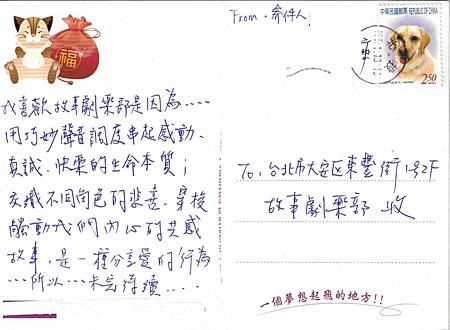 福
我喜歡故事劇樂部是因為....
用巧妙聲音調度串起感動、
真誠、快樂的生命本質；
交織不同角色的悲喜、穿梭
觸動我們內心的共感
故事，是一種分享愛的行為
...所以...未完待續....
From. 寄件人
中華民國郵票 REPUBLIC OF CHINA
2.50
To: 台北市大安区東豐街1號2F
故事劇樂部 收
一個夢想起飛的地方!!